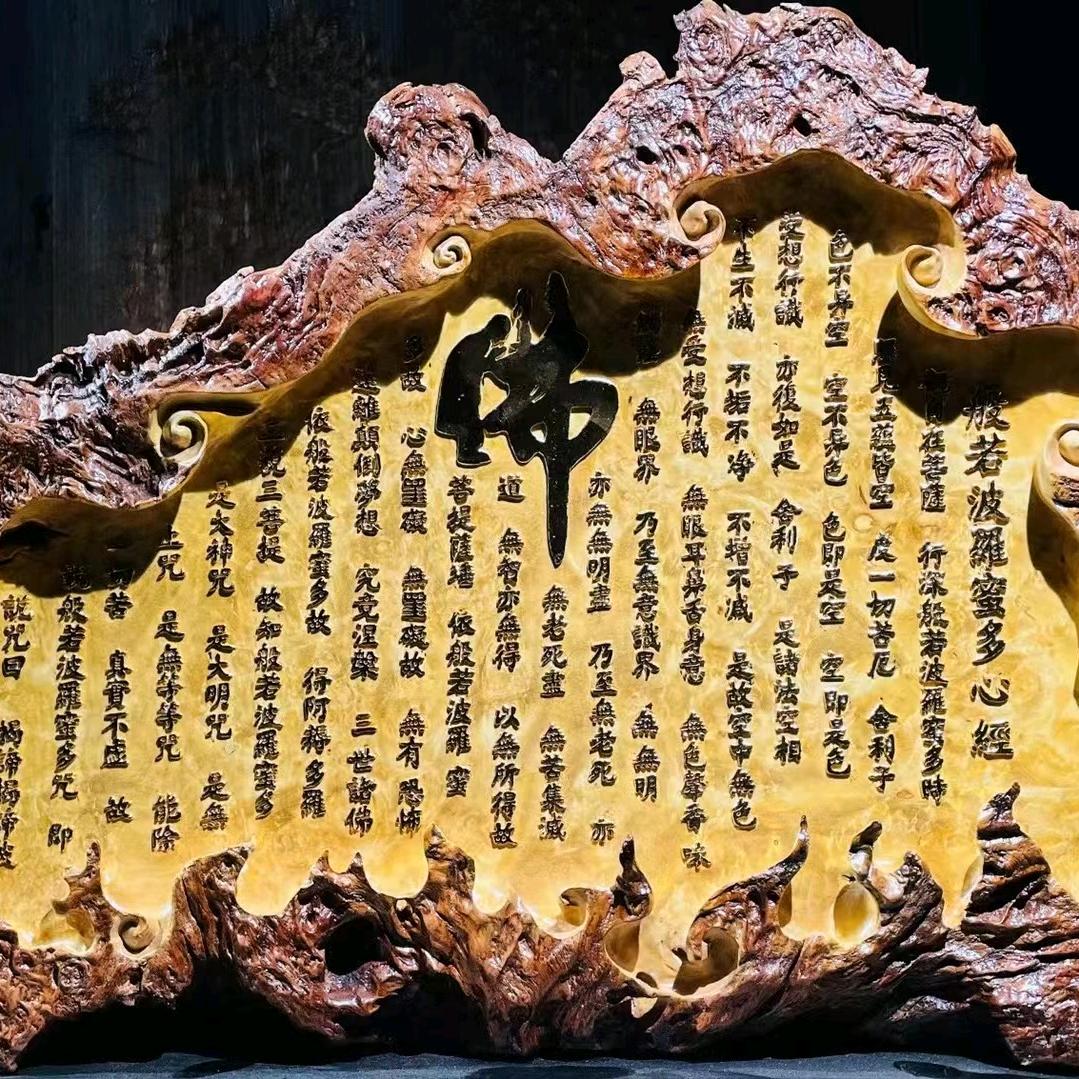 般若波羅蜜多心經
在菩薩 行深般若波羅蜜多時
照見五蘊皆空 度一切苦厄 舍利子
色不異空 空不異色 色即是空 空即是色
受想行識 亦復如是 舍利子 是諸法空相
不生不滅 不垢不净 不增不減 是故空中無色
無受想行識 無眼耳鼻舌身意 無色聲香味
無眼界 乃至無意識界 無無明
亦無無明盡 乃至無老死 亦
無老死盡 無苦集滅
佛
道 無智亦無得 以無所得故
菩提薩埵 依般若波羅蜜
多故 心無罣礙 無罣礙故 無有恐怖
遠離顛倒夢想 究竟涅槃 三世諸佛
依般若波羅蜜多故 得阿耨多羅
三藐三菩提 故知般若波羅蜜多
是大神咒 是大明咒 是無
上咒 是無等等咒 能除
一切苦 真實不虛 故
說般若波羅蜜多咒 即
說咒曰 揭諦揭諦波